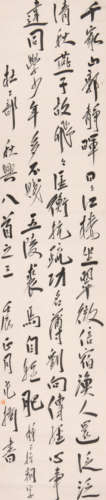 千家山郭靜暉日日江樓坐翠微信宿漁人還泛泛
清秋燕子故飛飛匡衡抗疏功名薄劉向傳經心事
違同學少年多不賤五陵裘馬自輕肥
杜工部秋興八首之三 正月 書